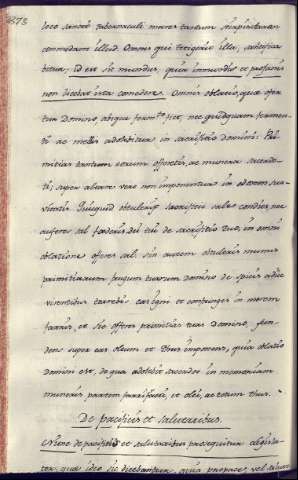 1873
loco sancto tabernaculi mares tantum stirpis Aaron
commedant illud. Omnis qui tetigerit illa, sanctifica
bitur, id est sit mundus, quia immundis et profanis
non licebat ista comedere. Omnis oblatio, quæ offer
tur Domino, absque fermto. fiet, nec quidquam fermenti
ti ac mellis adolebitur in sacrificio domini: Pri
mitias tantum eorum offeretis, ac munera sacerdo
ti; super altare vero non imponentur in odorem sua
vitatis. Quicquid obtuleris sacrificii sale condies, nec
auferes sal foederis dei tui de sacrificio tuo, in omni
oblatione offeres sal. sin autem obtuleris munus
primitiarum frugum tuarum Domino de spicis adhuc
virentibus torrebis eas igni et confringes in morem
farris, et sic offeres primitias tuas Domino, fun
dens super eas oleum et thus imponens, quia oblatio
domini est, de qua adolebit sacerdos in memoriam
muneris partem farris fracti, et olei, ac totum thus.
De pacificis et salutaribus.
Nunc de pacificis et salutaribus prosequitur legisla
tor, quæ ideo sic dicebantur, quia pro pace, vel salute